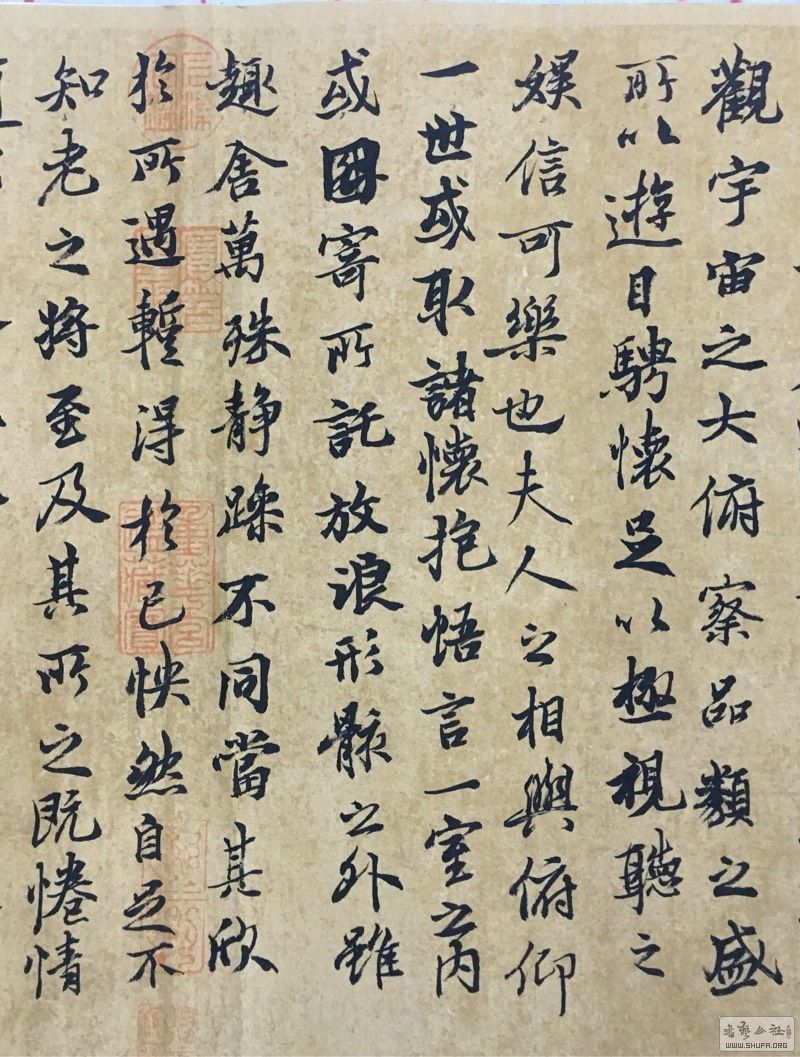 觀宇宙之大俯察品類之盛
所以遊目騁懷足以極視聽之
娛信可樂也夫人之相與俯仰
一世或取諸懷抱悟言一室之內
或因寄所託放浪形骸之外雖
趣舍萬殊静躁不同當其欣
於所遇蹔得於己怏然自足不
知老之將至及其所之既惓情
書藝公社
WWW.SHUFA.ORG